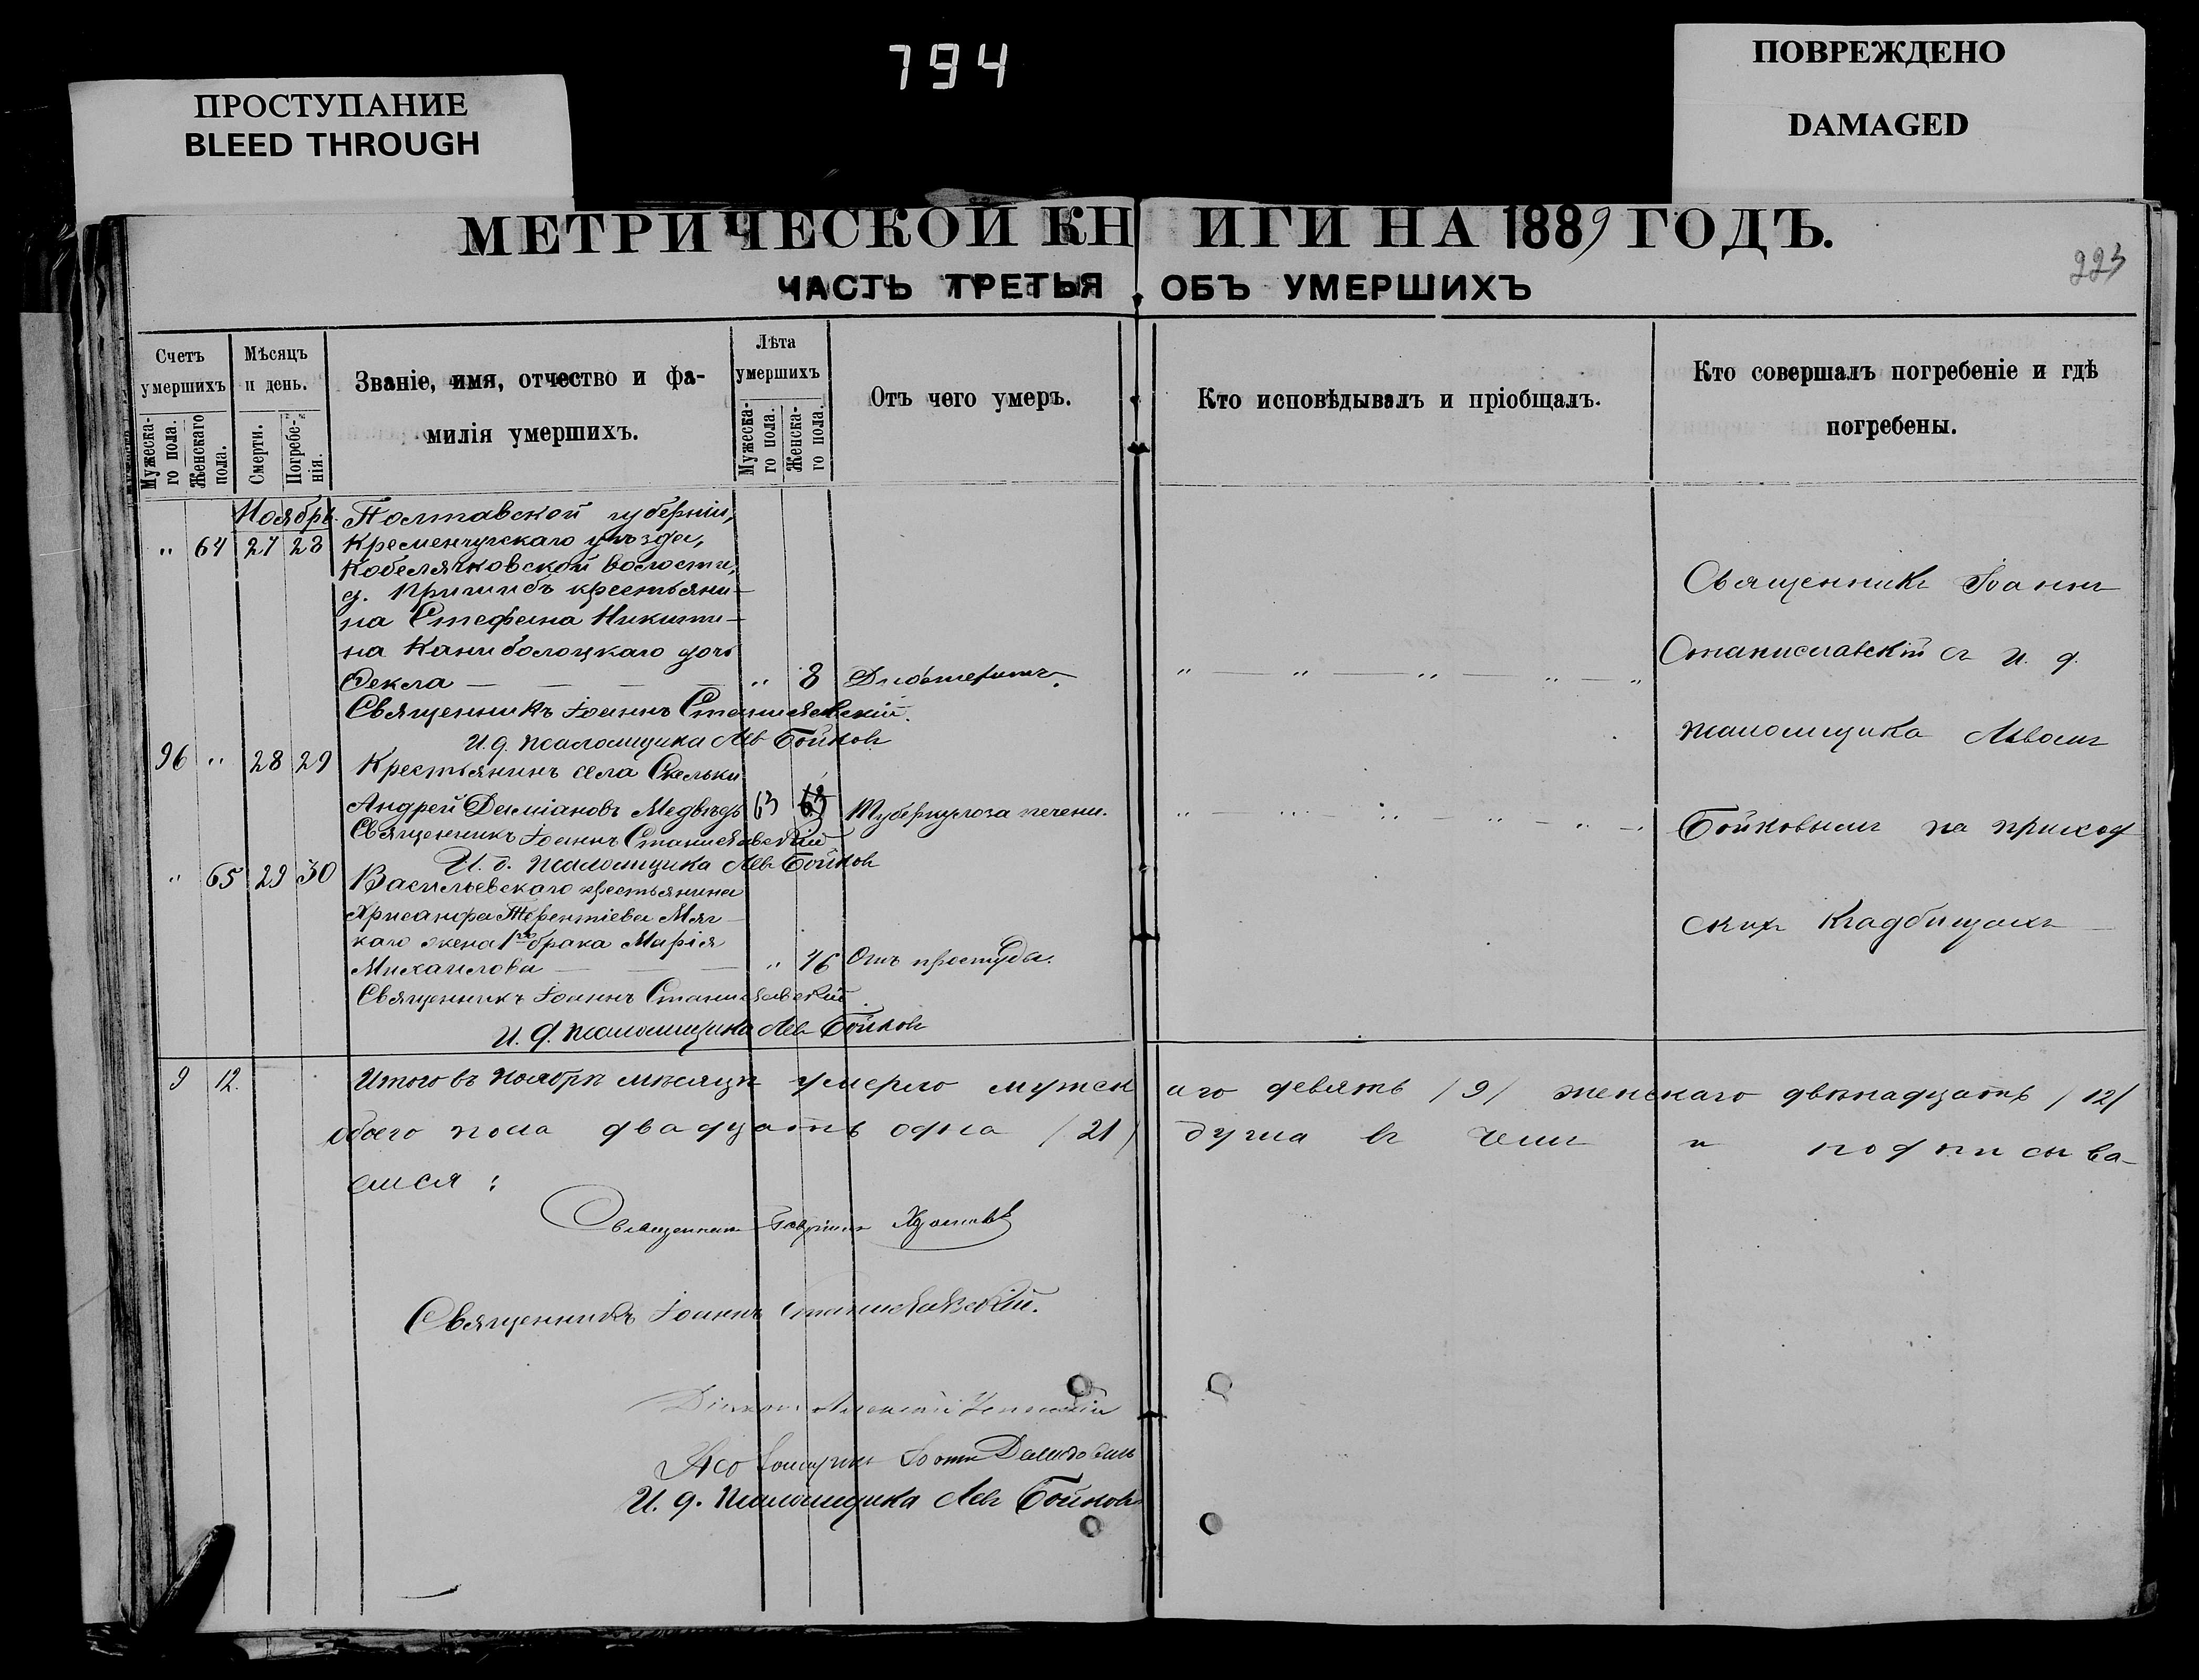 794
ПРОСТУПАНИЕ
BLEED THROUGH
ПОВРЕЖДЕНО
DAMAGED
МЕТРИЧЕСКОЙ КНИГИ НА 1889 ГОДЪ.
ЧАСТЬ ТРЕТЬЯ ОБЪ УМЕРШИХЪ
223
Счетъ умершихъ
Мужеска-
го пола.
Женскаго
пола.
Мѣсяцъ
и день.
Смерти.
Погребе-
нія.
Званіе, имя, отчество и фа-
милія умершихъ.
Лѣта
умершихъ
Мужеска-
го пола.
Женска-
го пола.
Отъ чего умеръ.
Кто исповѣдывалъ и пріобщалъ.
Кто совершалъ погребеніе и гдѣ
погребены.
Ноябрь
Полтавской губерніи,
„ 64 27 28 Кременчугскаго уѣзда,
Кобелячковской волости,
д. Пришибъ крестьяни-
на Стефана Никити-
на Каниболоцкаго дочь
Фекла — — — — „ 8 Дифтеритъ.
Священникъ Іоаннъ Станиславскій.
И. д. псаломщика Левъ Бойковъ
96 „ 28 29 Крестьянинъ села Скельки
Андрей Даміановъ Медвѣдь 63 63 Туберкулоза печени.
Священникъ Іоаннъ Станиславскій
И. д. псаломщика Левъ Бойковъ
„ 65 29 30 Васильевскаго крестьянина
Хрисанфа Терентіева Мяг-
каго жена 1го брака Марія
Михаилова — — — „ 46 Отъ простуды.
Священникъ Іоаннъ Станиславскій.
И. д. псаломщика Левъ Бойковъ
Священникъ Іоаннъ
Станиславскій съ и. д.
псаломщика Львомъ
Бойковымъ на приход
скихъ кладбищахъ —
9 12. Итого въ ноябрѣ мѣсяцѣ умерло мужскаго девять /9/ женскаго двѣнадцать /12/
обоего пола двадцать одна /21/ душа въ чемъ и подписыва-
емся:
Священникъ Гавріилъ
Священникъ Іоаннъ Станиславскій.
Діаконъ Алексій
Псаломщикъ
И. д. псаломщика Левъ Бойковъ